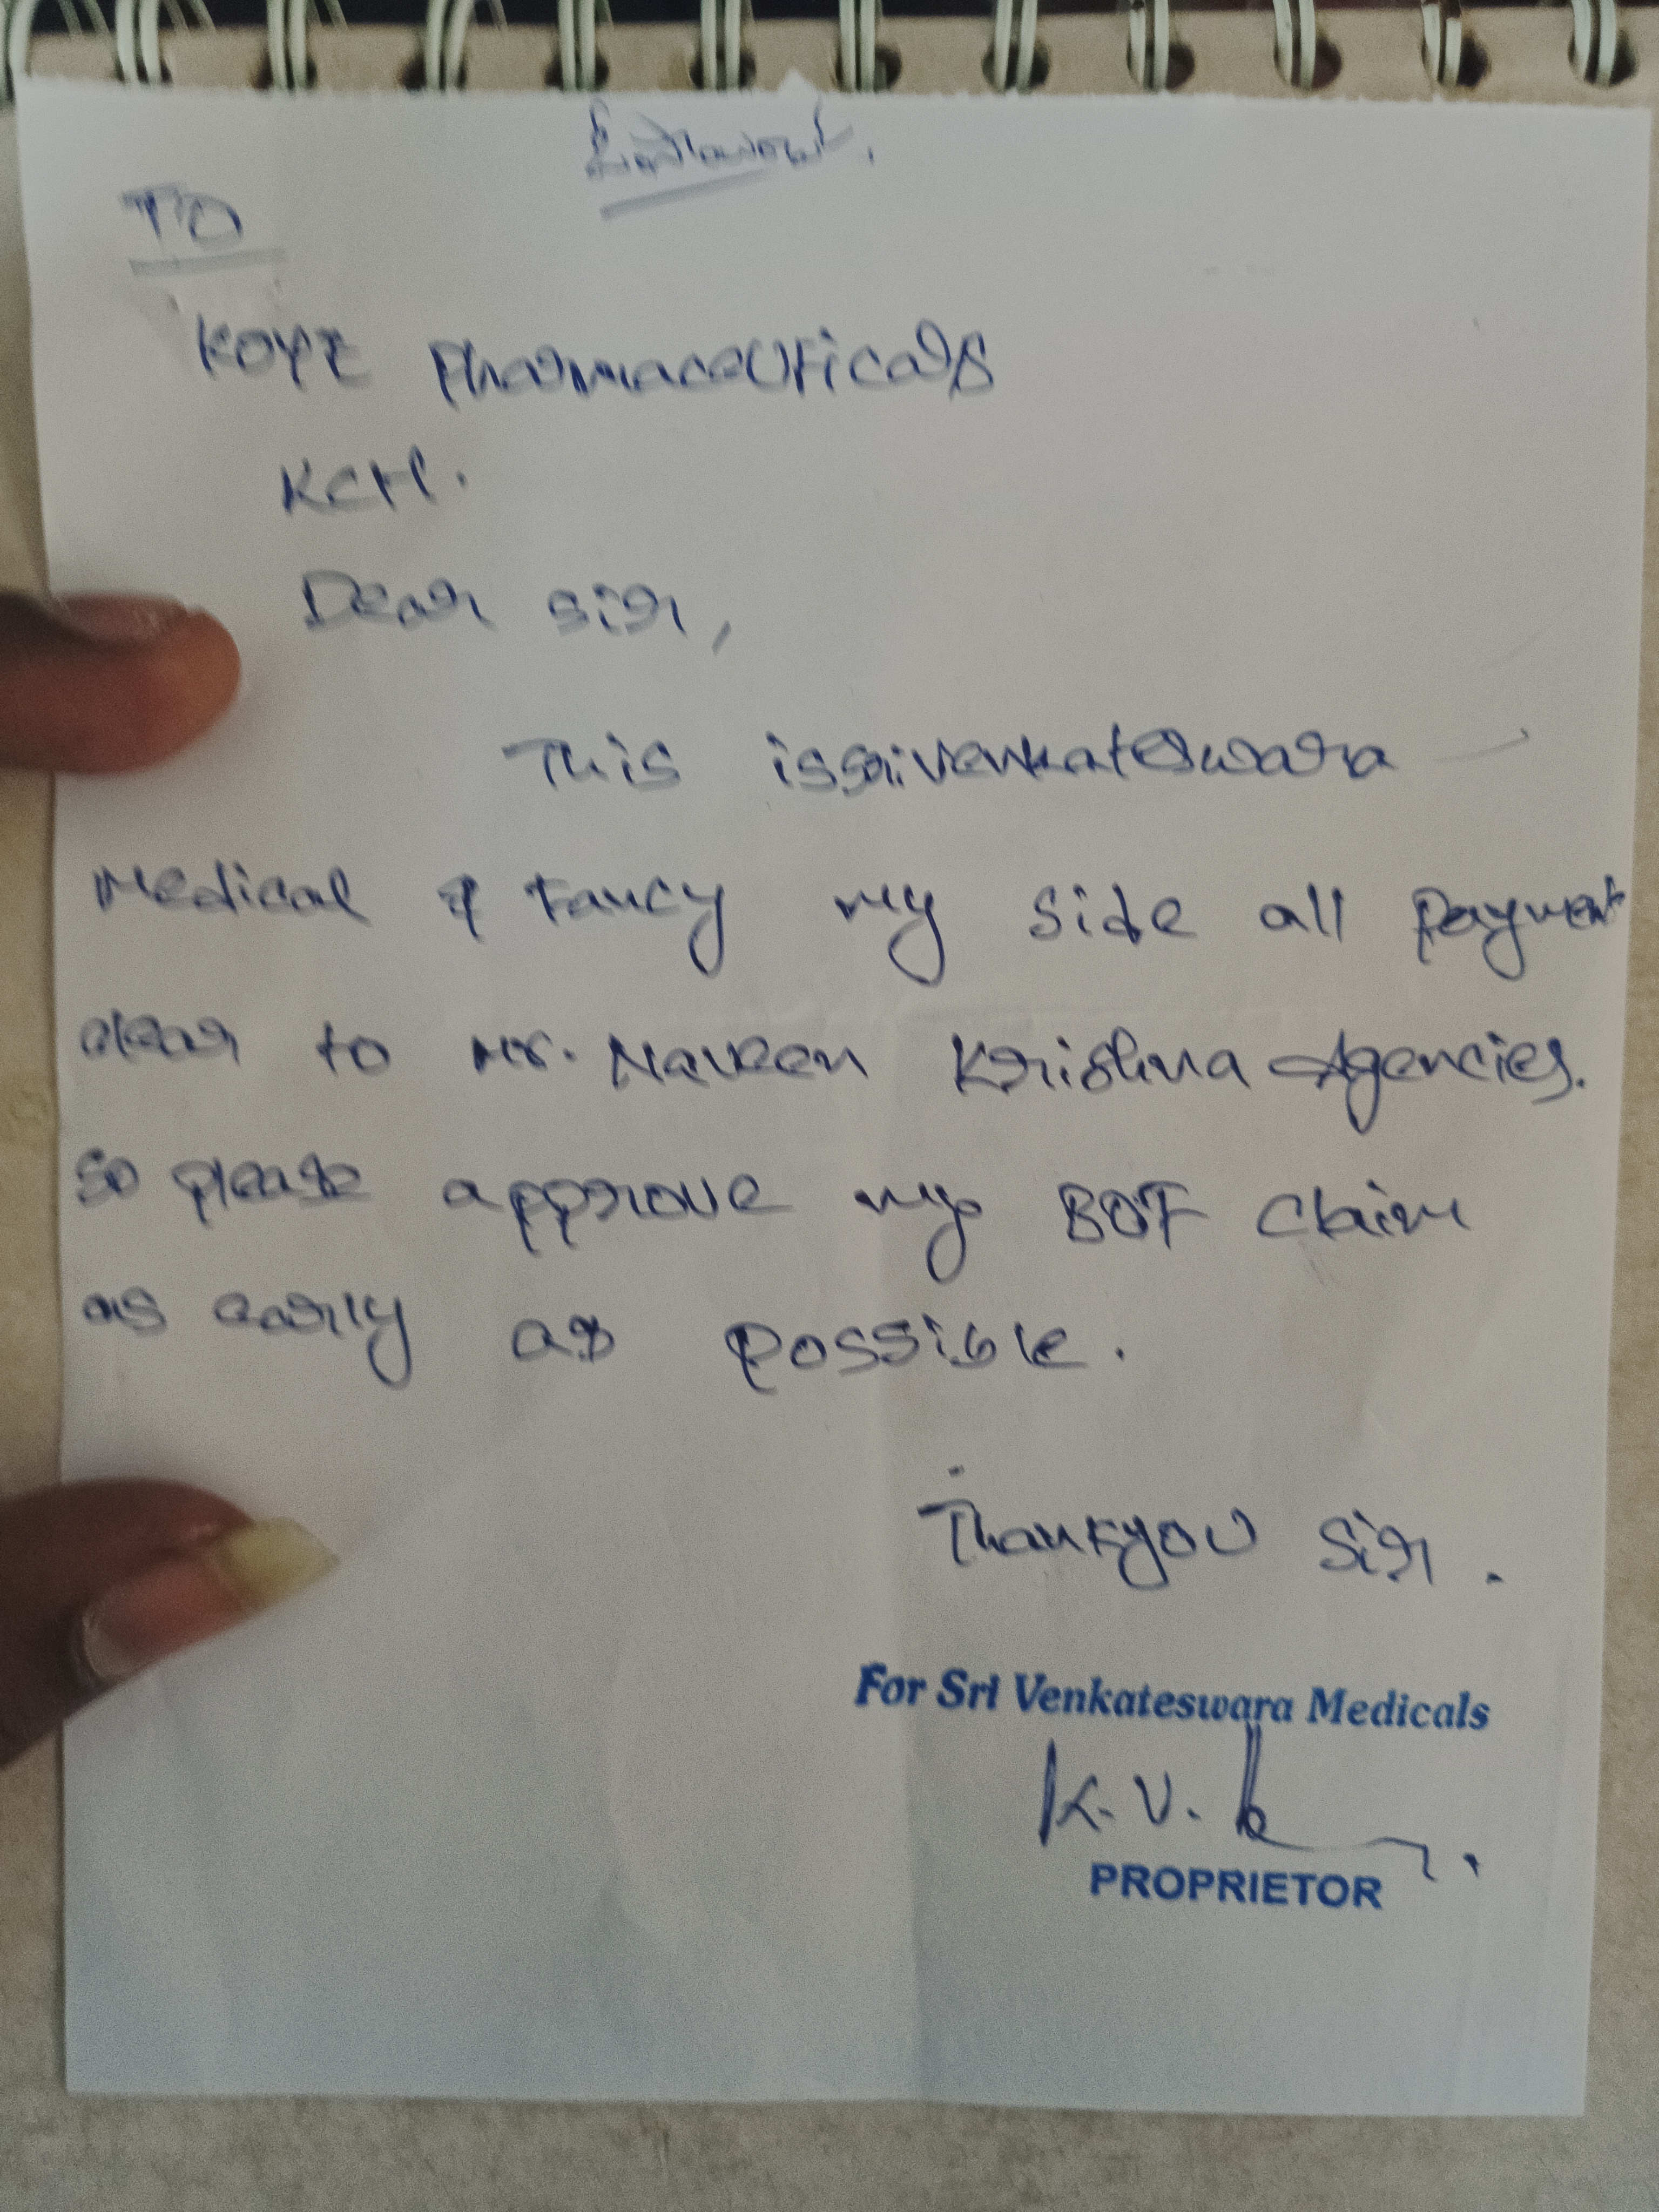 TO
KOYE Pharmaceuticals
KCH.
Dear sir,
This is sri venkateswara
Medical & Fancy my side all payment
clear to Mr. Naveen Krishna Agencies.
so please approve my BOF claim
as early as possible.
Thankyou Sir.
For Sri Venkateswara Medicals
K. V.
PROPRIETOR